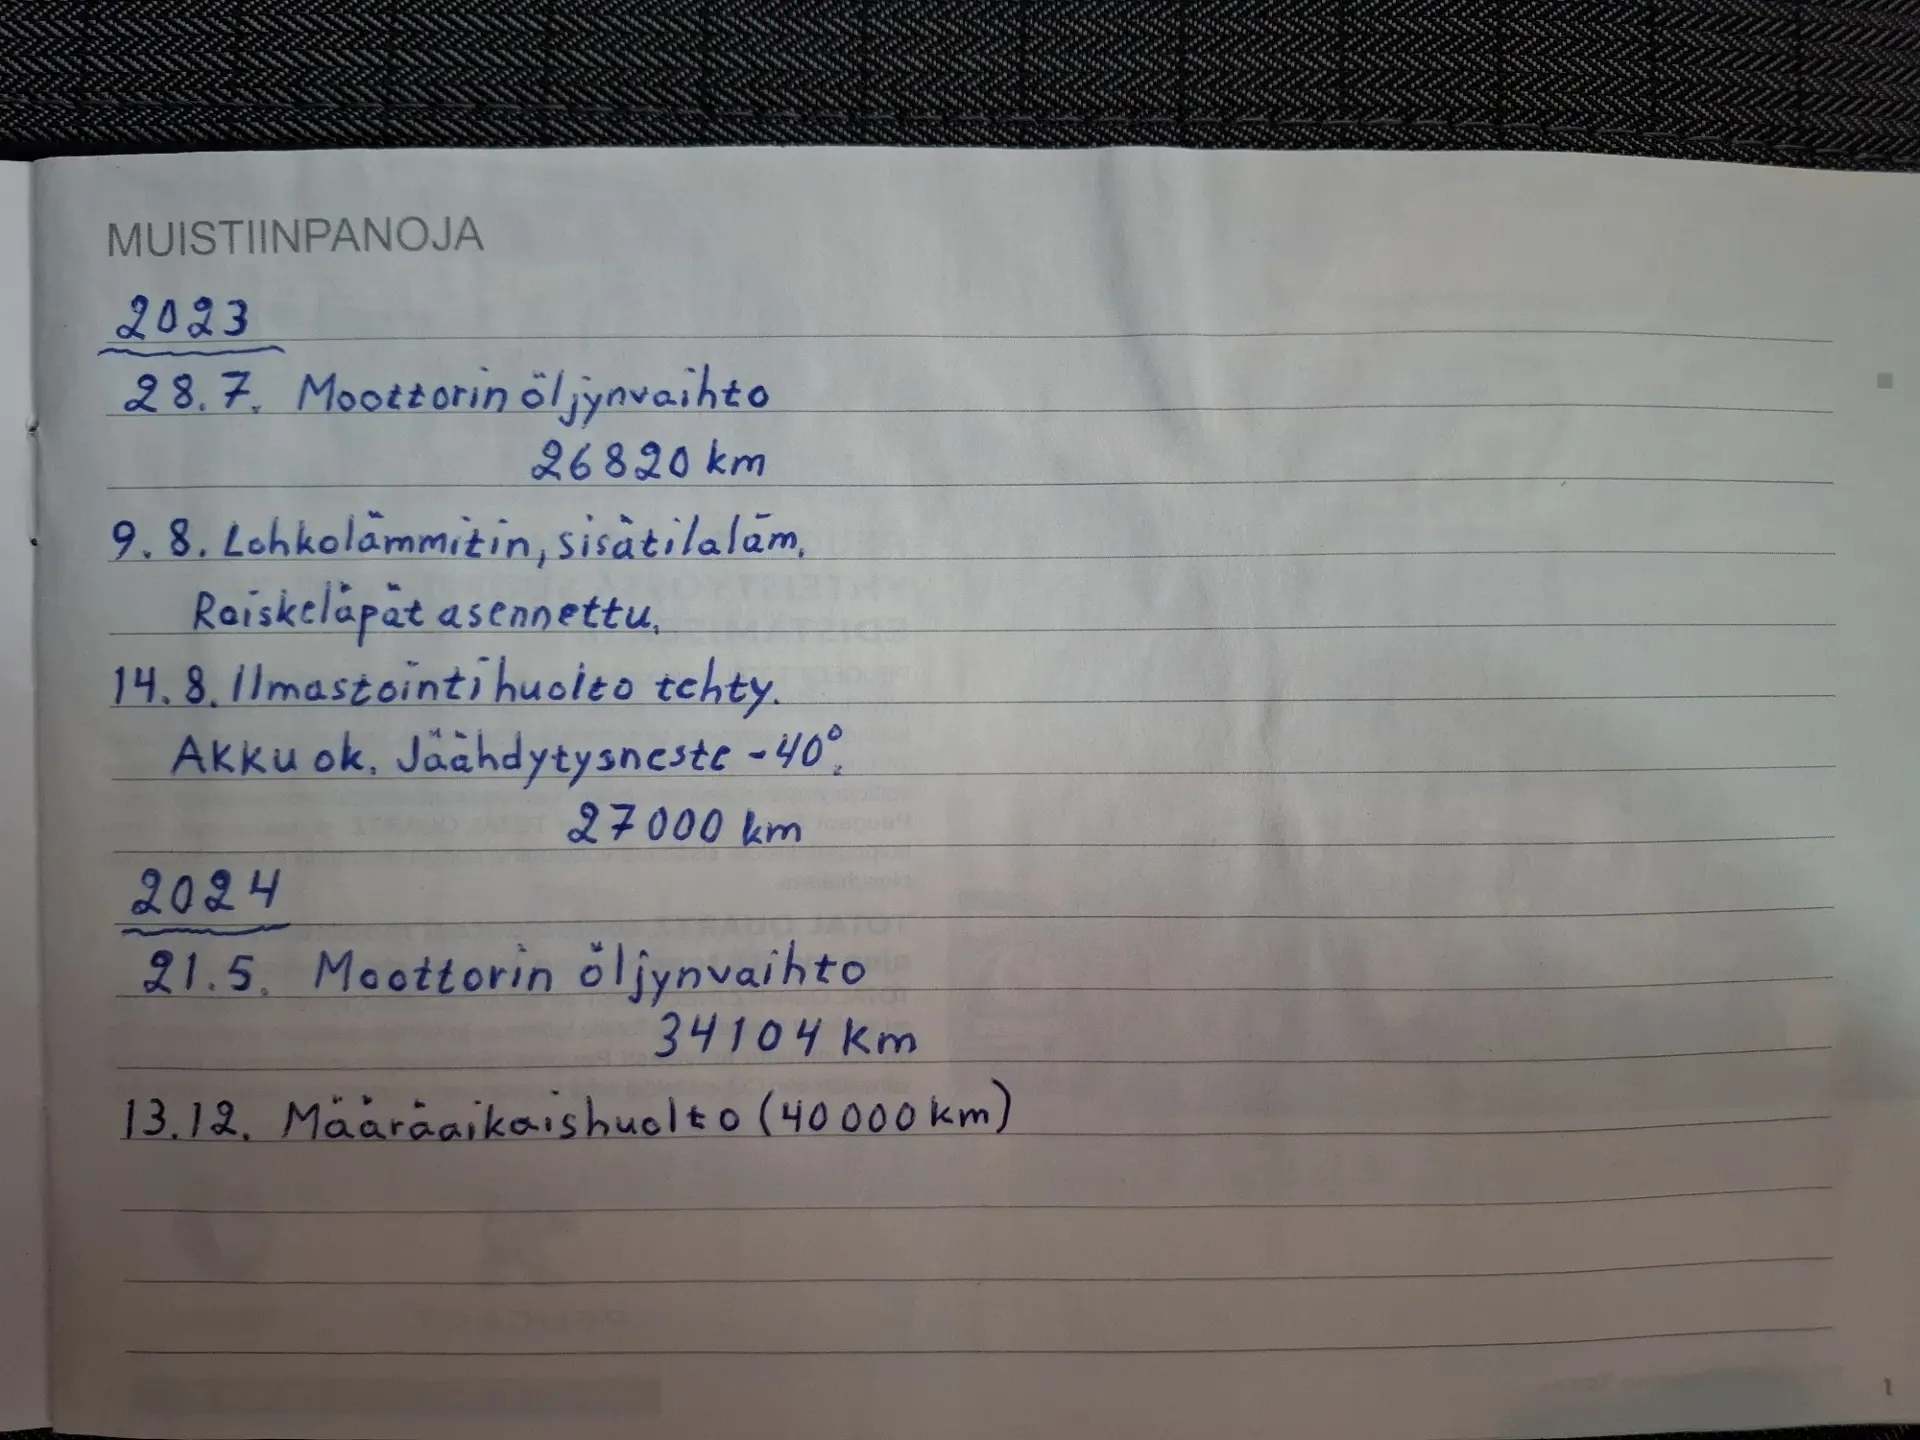 MUISTIINPANOJA
2023
28.7. Moottorin öljynvaihto
26820 km
9.8. Lohkolämmitin, sisätilaläm.
Roiskeläpät asennettu.
14.8. Ilmastointihuolto tehty.
Akku ok. Jäähdytysneste -40°.
27000 km
2024
21.5. Moottorin öljynvaihto
34104 km
13.12. Määräaikaishuolto (40000 km)
1